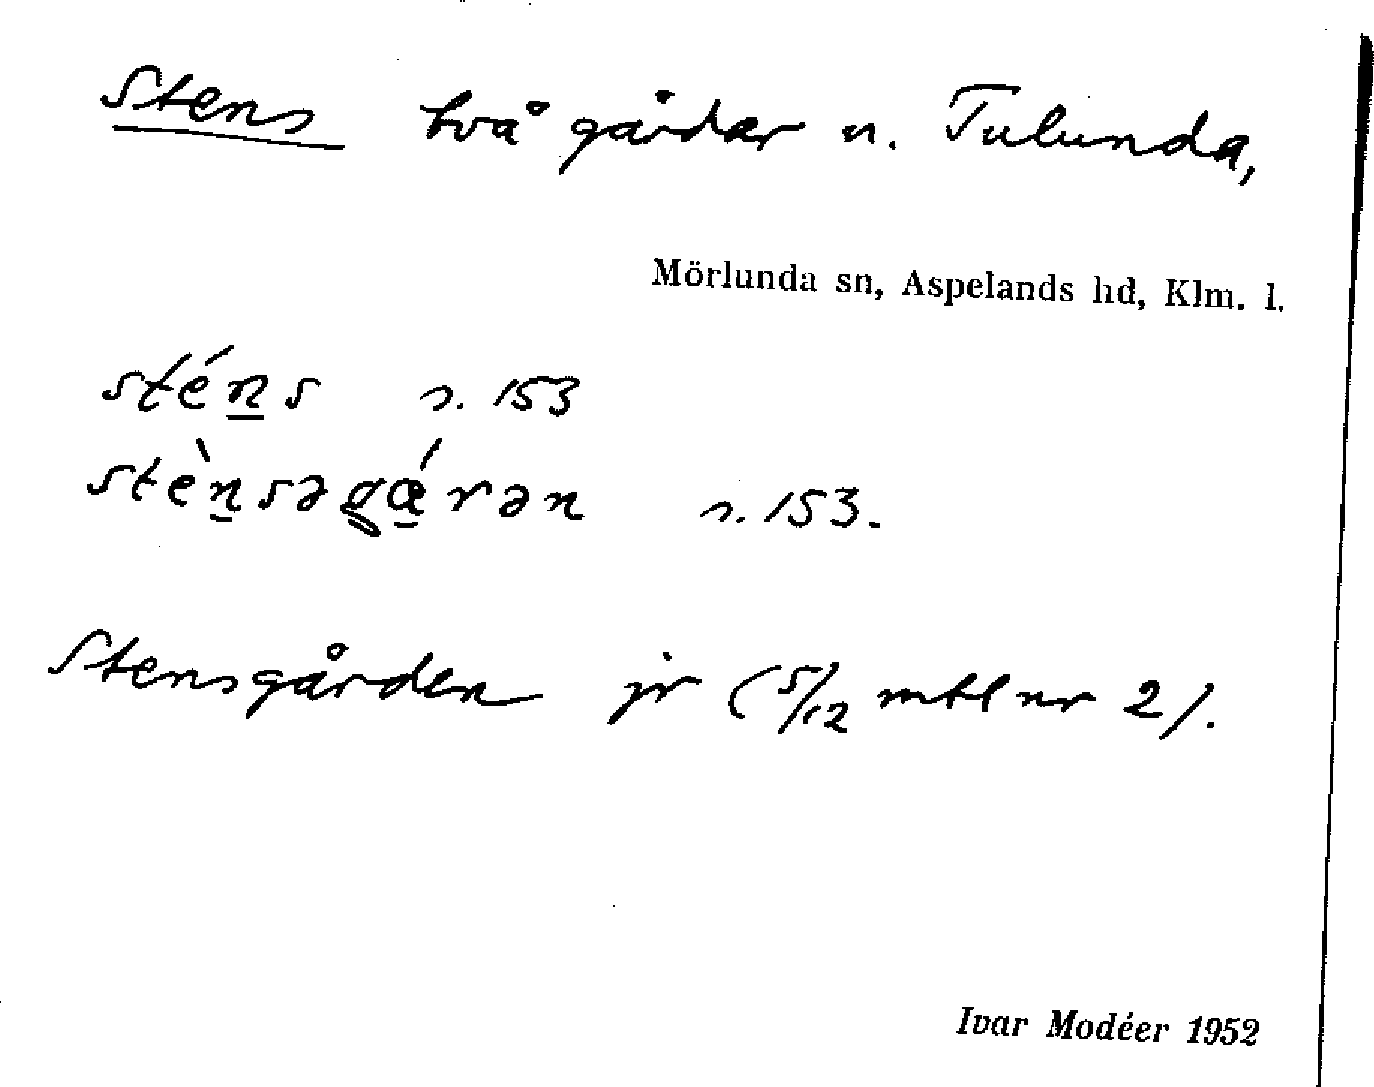 Stens två gårdar u. Tulunda,
Mörlunda sn, Aspelands hd, Klm. l.
sténs s. 153
stènsəgǽrən s. 153.
Stensgården jr (5/12 mtl nr 2).
Ivar Modéer 1952